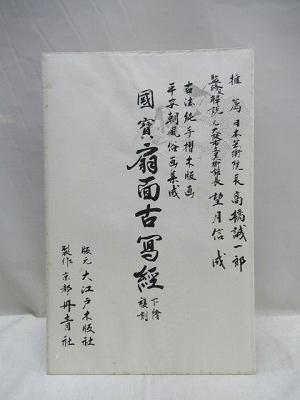 推薦 日本芸術院長 高橋誠一郎
監修解説 元大阪市立美術館長 望月信成
古法純手摺木版画
平安朝風俗画集成
國寶扇面古寫經 下繪複刻
版元 大江戸木版社
製作 京都 丹青社